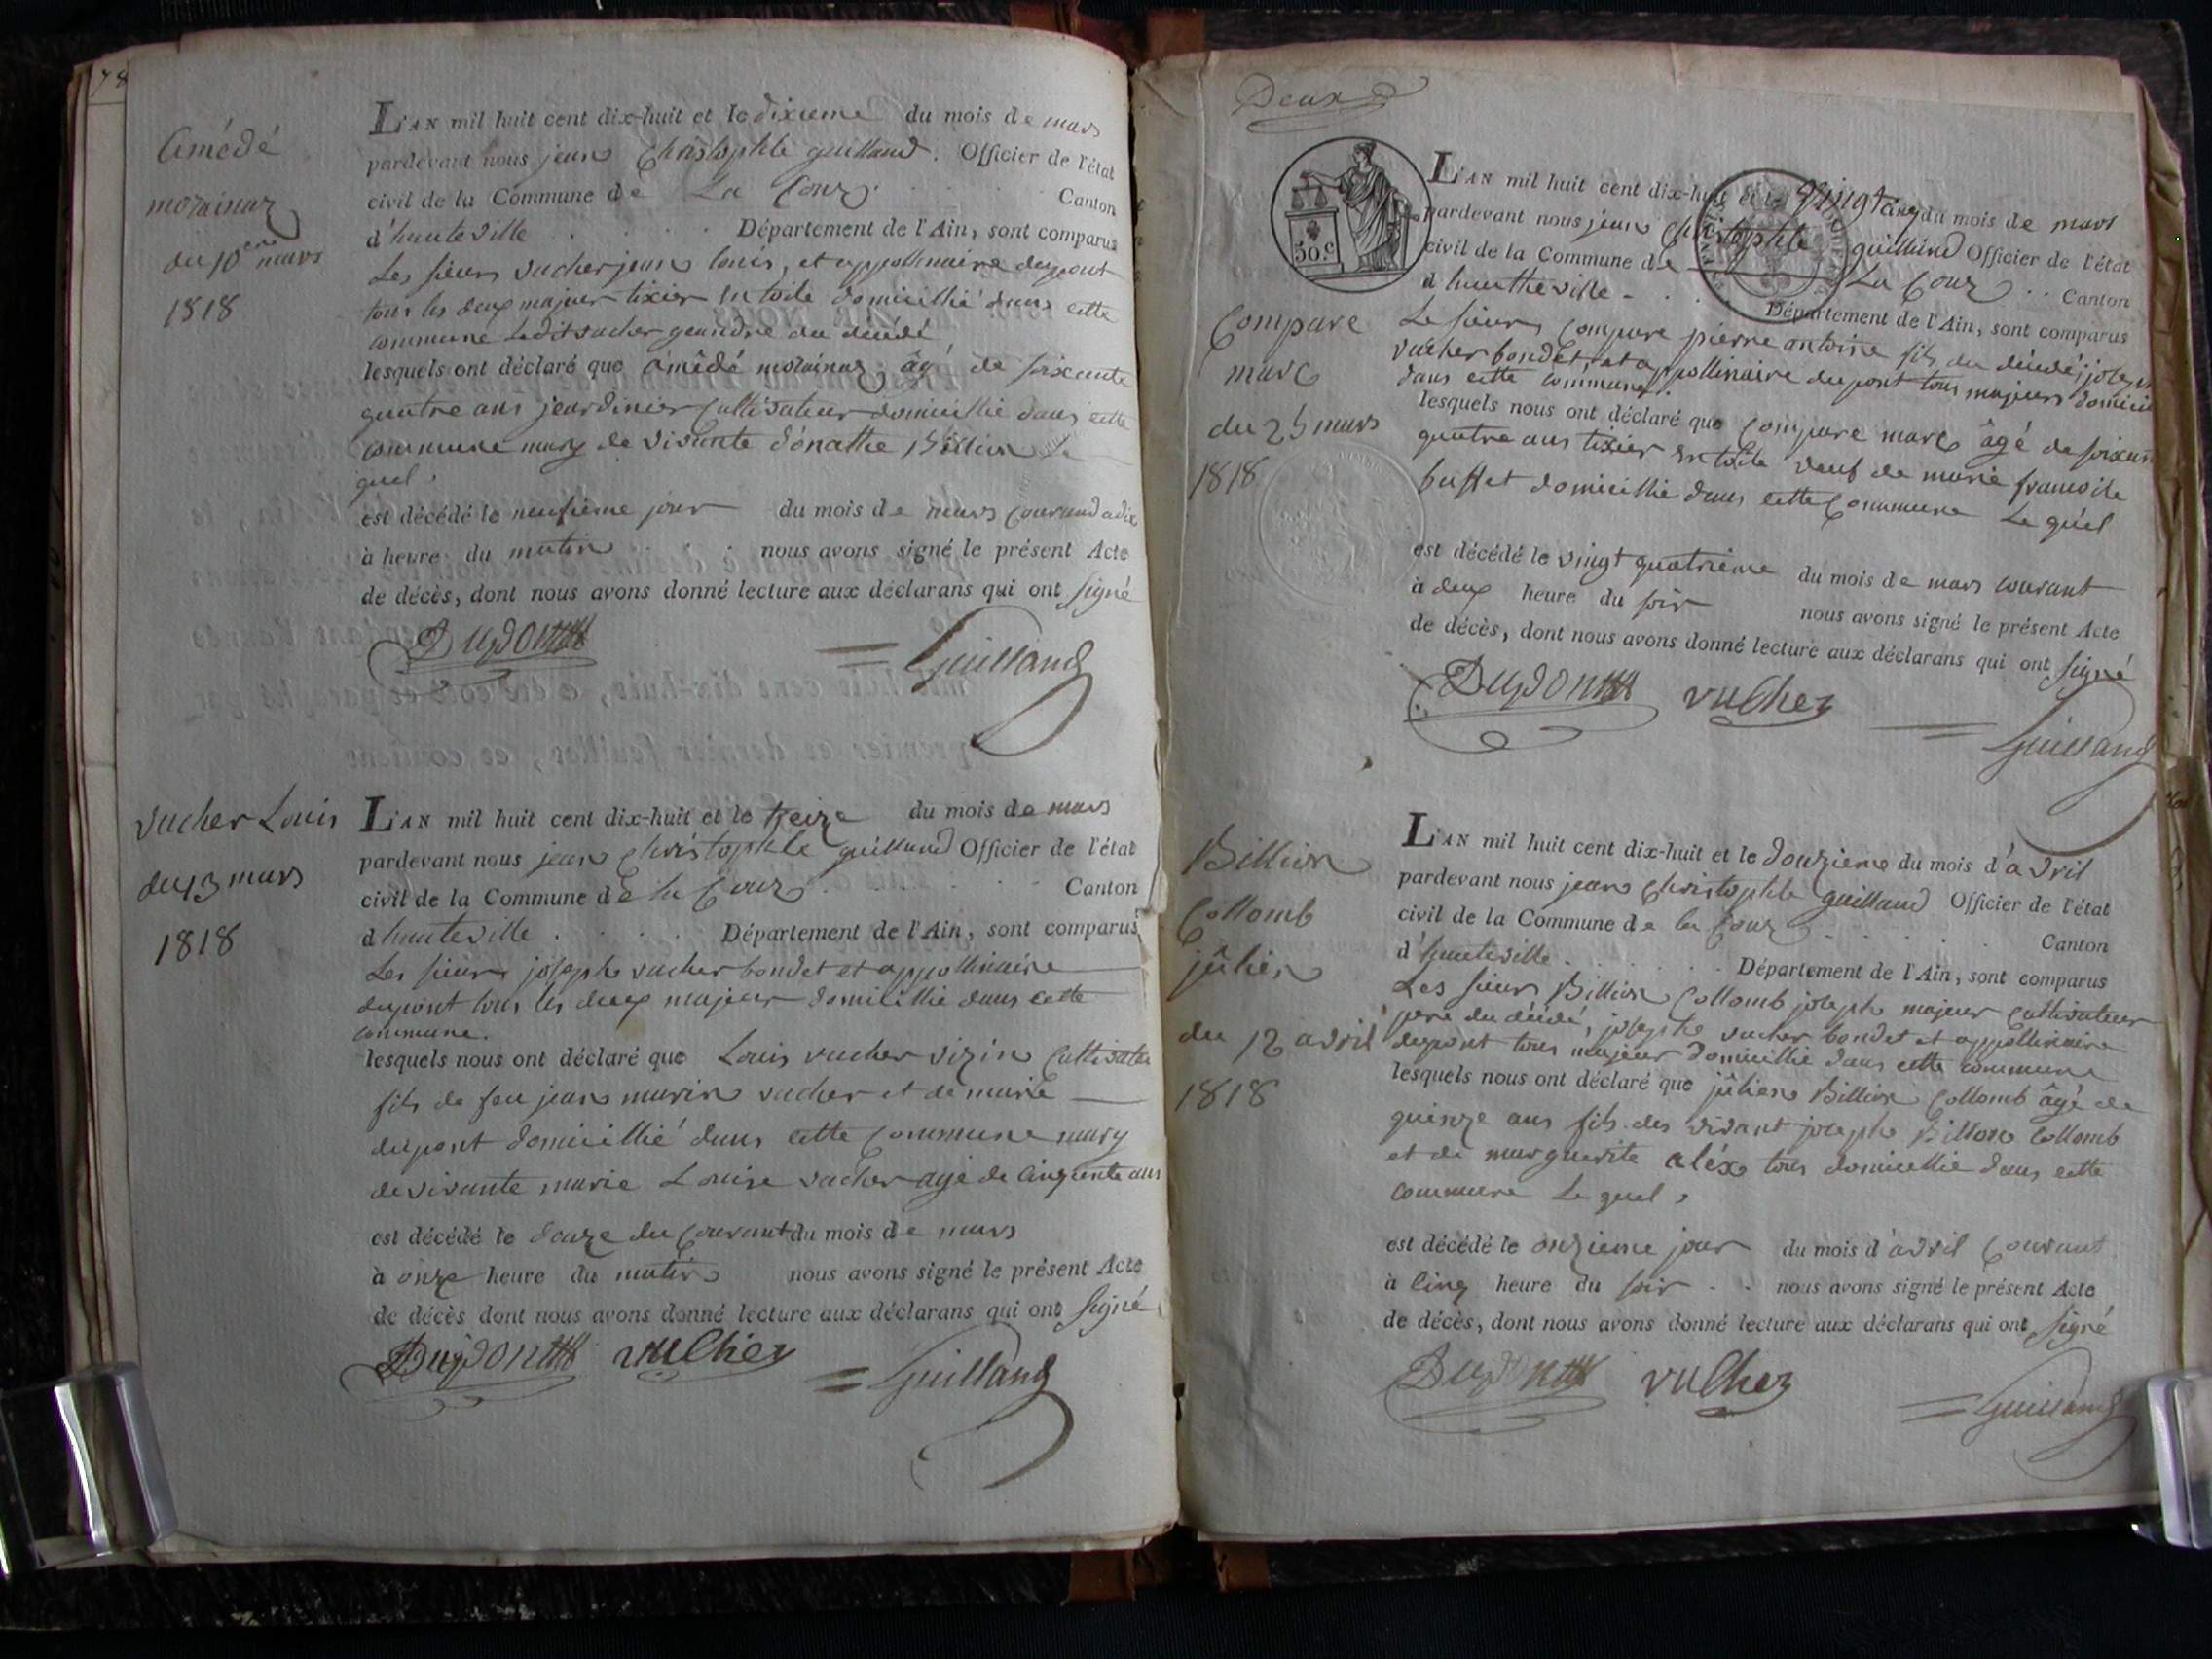 78
Amédé
morainaz
du 10eme mars
1818
L'AN mil huit cent dix-huit et le dixieme du mois de mars
pardevant nous jean Christophle guilland. Officier de l'état
civil de la Commune de La Couz Canton
d'hauteville Département de l'Ain, sont comparus
Les sieurs vacher jean louis, et appollinaire dupont
tous les deux majeur tixier en toile domicillié dans cette
commune Ledit vacher geandre du décédé
lesquels ont déclaré que amêdé morainaz âgé de soixante
quatre ans jeardinier Cultivateur domicillié dans cette
commune mary de vivante d'onathe Billion Le
quel,
est décédé le neufieme jour du mois de mars Courand a dix
à heure du matin nous avons signé le présent Acte
de décès, dont nous avons donné lecture aux déclarans qui ont signé
Dupont Guilland
vacher Louis
du 13 mars
1818
L'AN mil huit cent dix-huit et le treize du mois de mars
pardevant nous jean christophle guilland Officier de l'état
civil de la Commune de la Couz Canton
d hauteville Département de l'Ain, sont comparus
Les sieurs joseph vacher bondet et appollinaire
dupont tous les deux majeur domicillié dans cette
commune.
lesquels nous ont déclaré que Louis vacher vizin Cultivateu
fils de feu jean marin vacher et de marie
dupont domicillié dans cette Commune mary
de vivante marie Louise vacher agé de Cinquente ans
est décédé le douze du Courant du mois de mars
à onze heure du matin nous avons signé le présent Acte
de décès dont nous avons donné lecture aux déclarans qui ont signé
Dupont vacher Guilland
Deux
50.c
Compare
marc
du 25 mars
1818
L'AN mil huit cent dix-huit et le vingt cinq du mois de mars
pardevant nous jean Christophle guilland Officier de l'état
civil de la Commune de La Couz Canton
d hautheville Département de l'Ain, sont comparus
Le sieurs Compare pierre antoine fils du décédé, joseph
vacher bondet, et appollinaire dupont tous majeurs domicié
dans cette commune.
lesquels nous ont déclaré que Compare marc âgé de soixan
quatre ans tixier en toile veuf de marie francoise
buffet domicillié dans cette Commune Le quel
est décédé le vingt quatrieme du mois de mars courant
à deux heure du soir nous avons signé le présent Acte
de décès, dont nous avons donné lecture aux déclarans qui ont signé
Dupont vacher Guilland
Billion
Collomb
jûlien
du 12 avril
1818
L'AN mil huit cent dix-huit et le douzieme du mois d'avril
pardevant nous jean Christophle guilland Officier de l'état
civil de la Commune de la Couz Canton
d'hauteville Département de l'Ain, sont comparus
Les sieur Billion Collomb joseph majeur Cultivateur
pere du décédé, joseph vacher bondet et appollinaire
dupont tous majeur domicillié dans cette commune
lesquels nous ont déclaré que jûlien Billion Collomb âgé de
quinze ans fils des vivant joseph Billion Collomb
et de marguerite aléx tous domicellié dans cette
commune Le quel,
est décédé le onzieme jour du mois d'avril Courant
à Cinq heure du soir nous avons signé le présent Acte
de décès, dont nous avons donné lecture aux déclarans qui ont signé
Dupont vacher Guilland